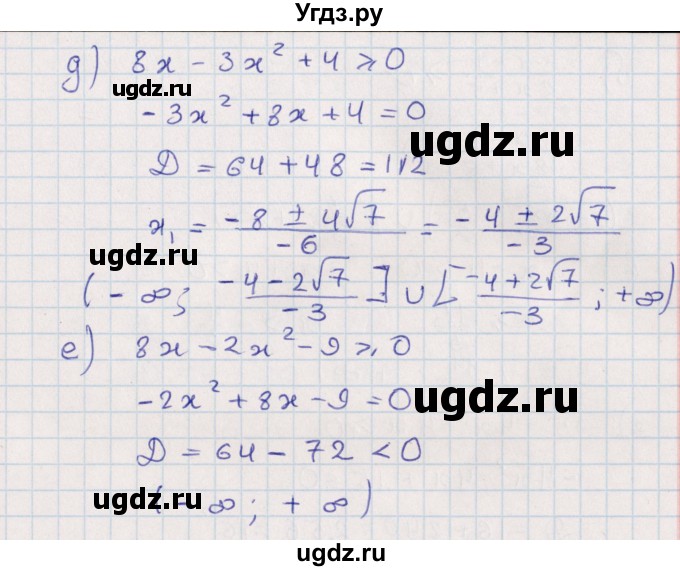 Угдз.ру
д) 8x - 3x² + 4 ⩾ 0
ugdz.ru
- 3x² + 8x + 4 = 0
ugdz.ru
D = 64 + 48 = 112
x₁ = (-8 ± 4√7)/(-6) = (-4 ± 2√7)/(-3)
ugdz.ru
(-∞; (-4-2√7)/(-3)] ∪ [(-4+2√7)/(-3); +∞)
ugdz.ru
е) 8x - 2x² - 9 ⩾ 0
-2x² + 8x - 9 = 0
ugdz.ru
D = 64 - 72 < 0
ugdz.ru
(-∞; +∞)
ugdz.ru